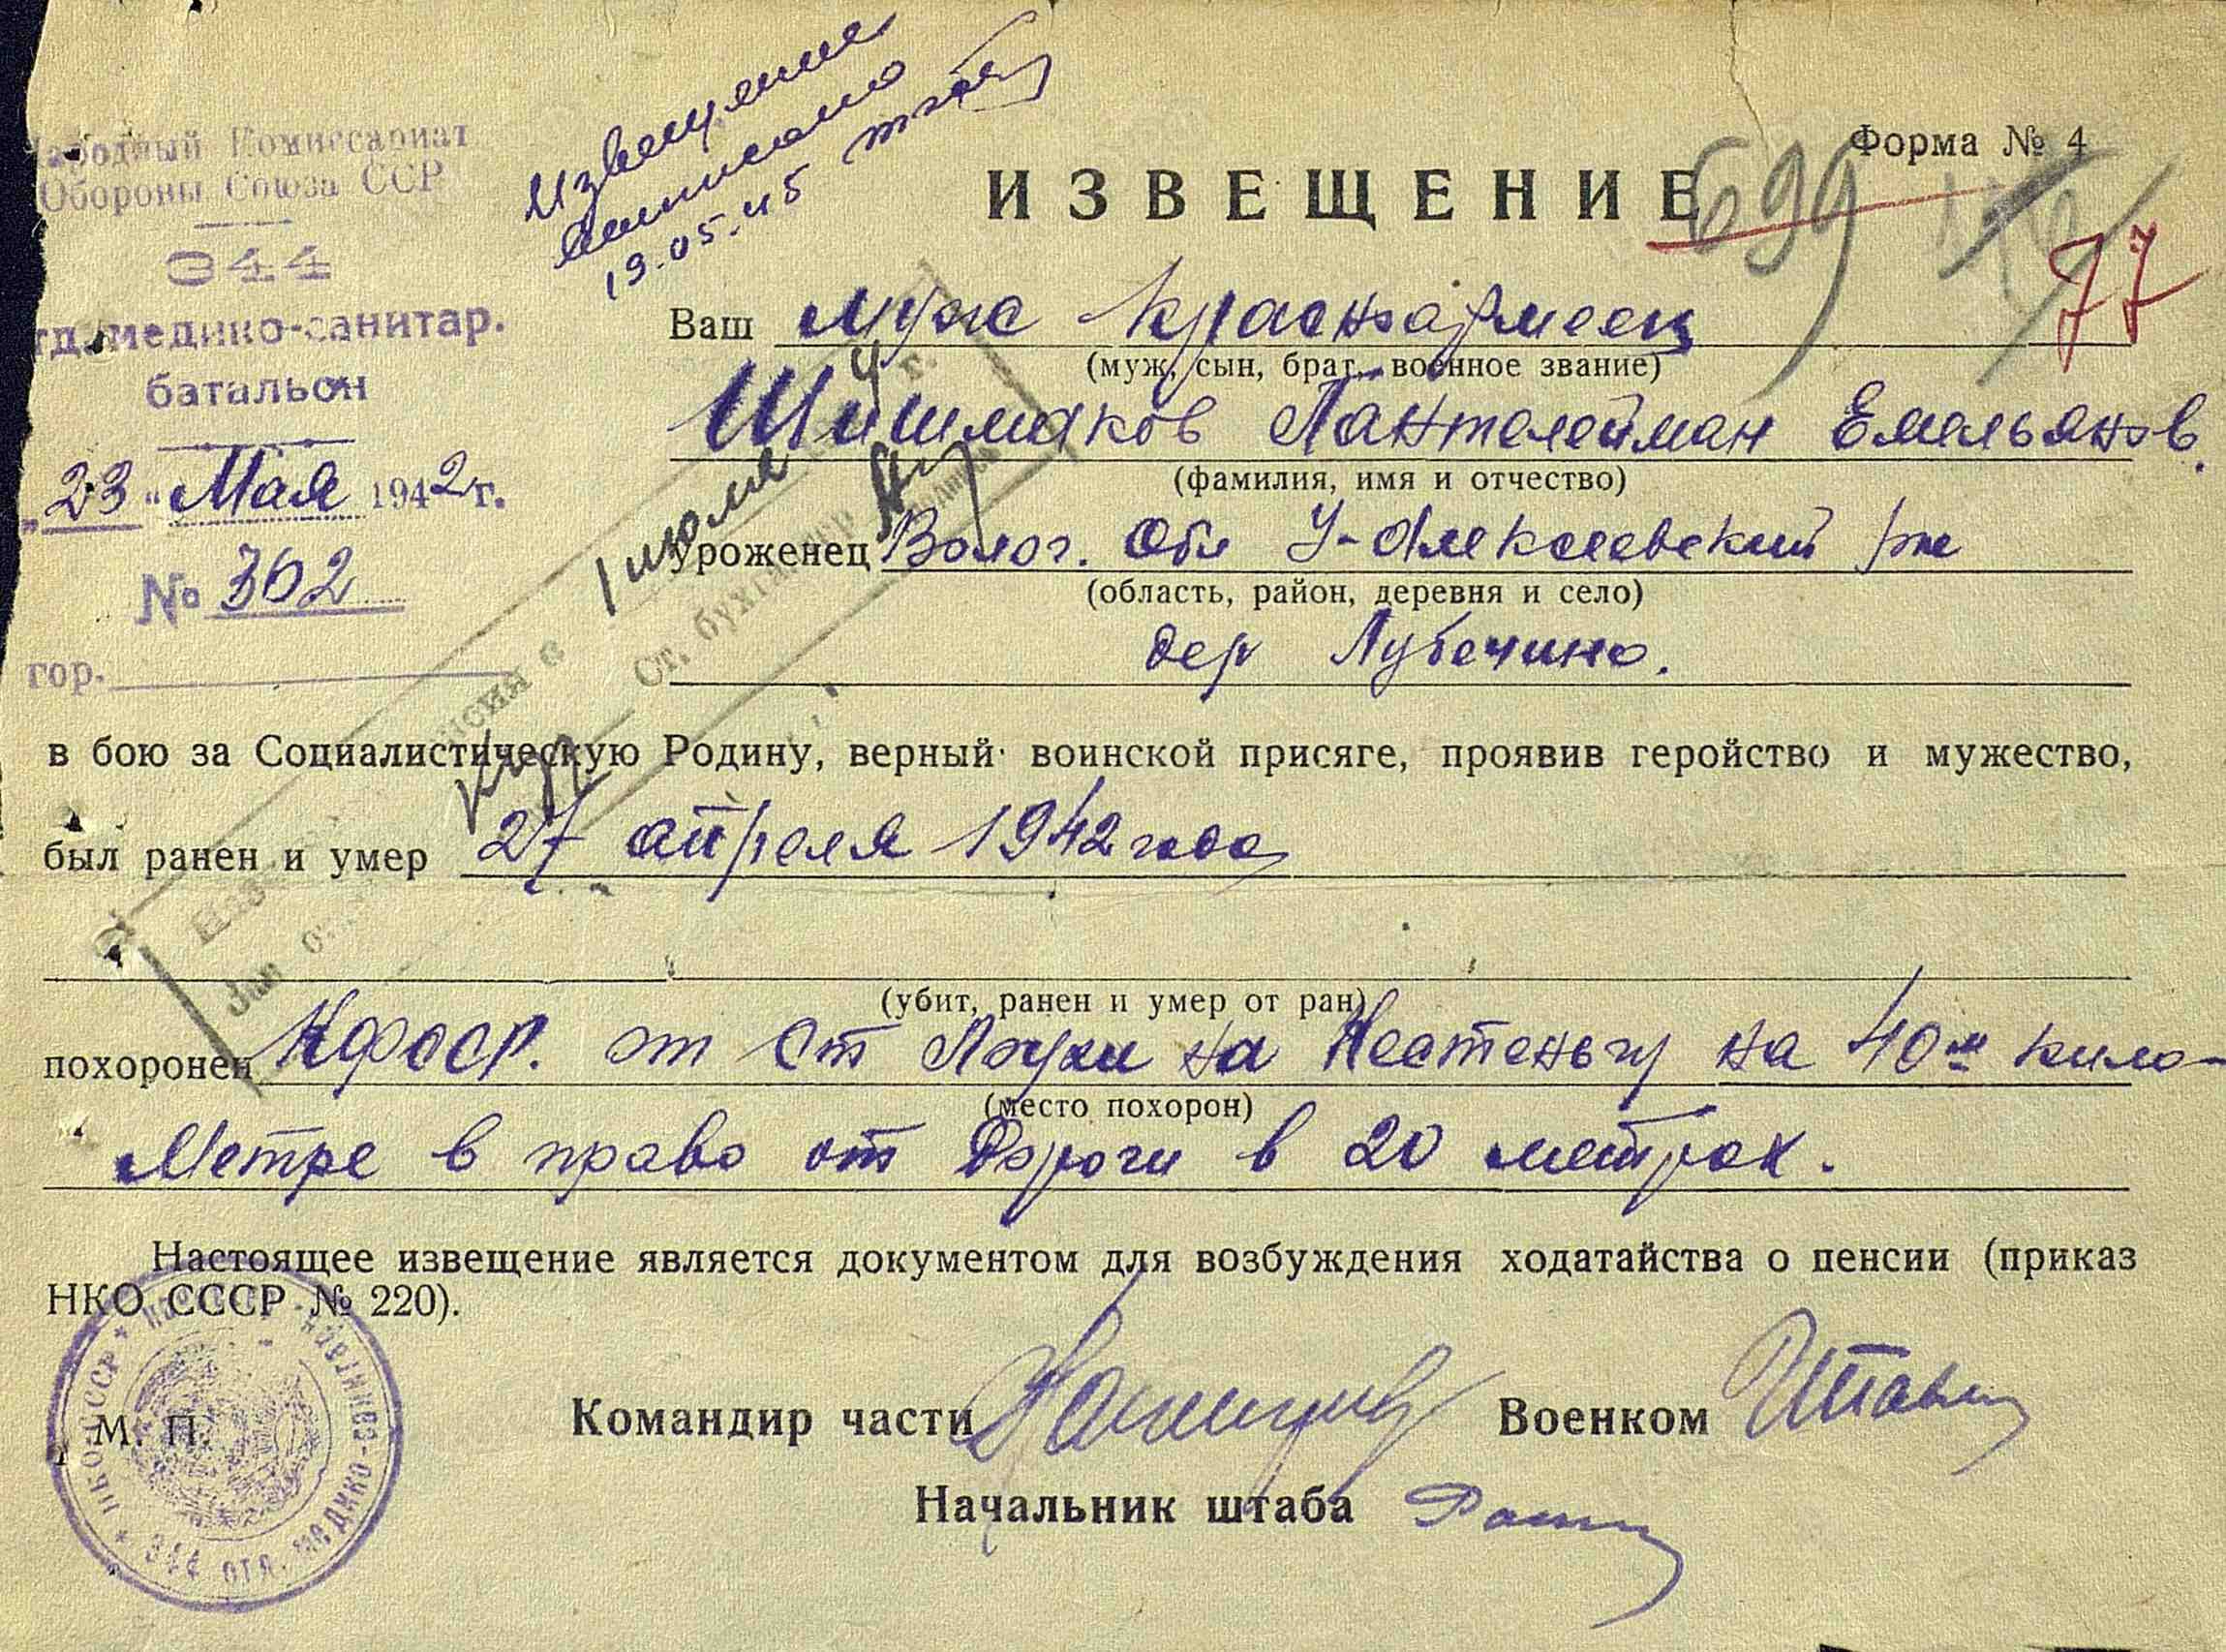 Народный Комиссариат
Обороны Союза ССР
344
отд. медико-санитар.
батальон
„23" Мая 1942 г.
№ 302
гор.
Извещение
19.05.45
Форма № 4
ИЗВЕЩЕНИЕ
699
77
Ваш муж красноармеец
(муж, сын, брат, военное звание)
Шишмаков Пантелейман Емельянов.
(фамилия, имя и отчество)
1 июля
Ст. бухгалтер
Уроженец Волог. обл У-Алексеевский рн
(область, район, деревня и село)
дер Лубечино.
в бою за Социалистическую Родину, верный воинской присяге, проявив геройство и мужество,
был ранен и умер 27 апреля 1942 года
(убит, ранен и умер от ран)
похоронен КФССР. от ст Лоухи на Кестеньгу на 40м кило-
(место похорон)
метре в право от Дороги в 20 метрах.
Настоящее извещение является документом для возбуждения ходатайства о пенсии (приказ
НКО СССР № 220).
НКО СССР
344 отд. медико-санитарн.
М. П.
Командир части
Военком
Начальник штаба